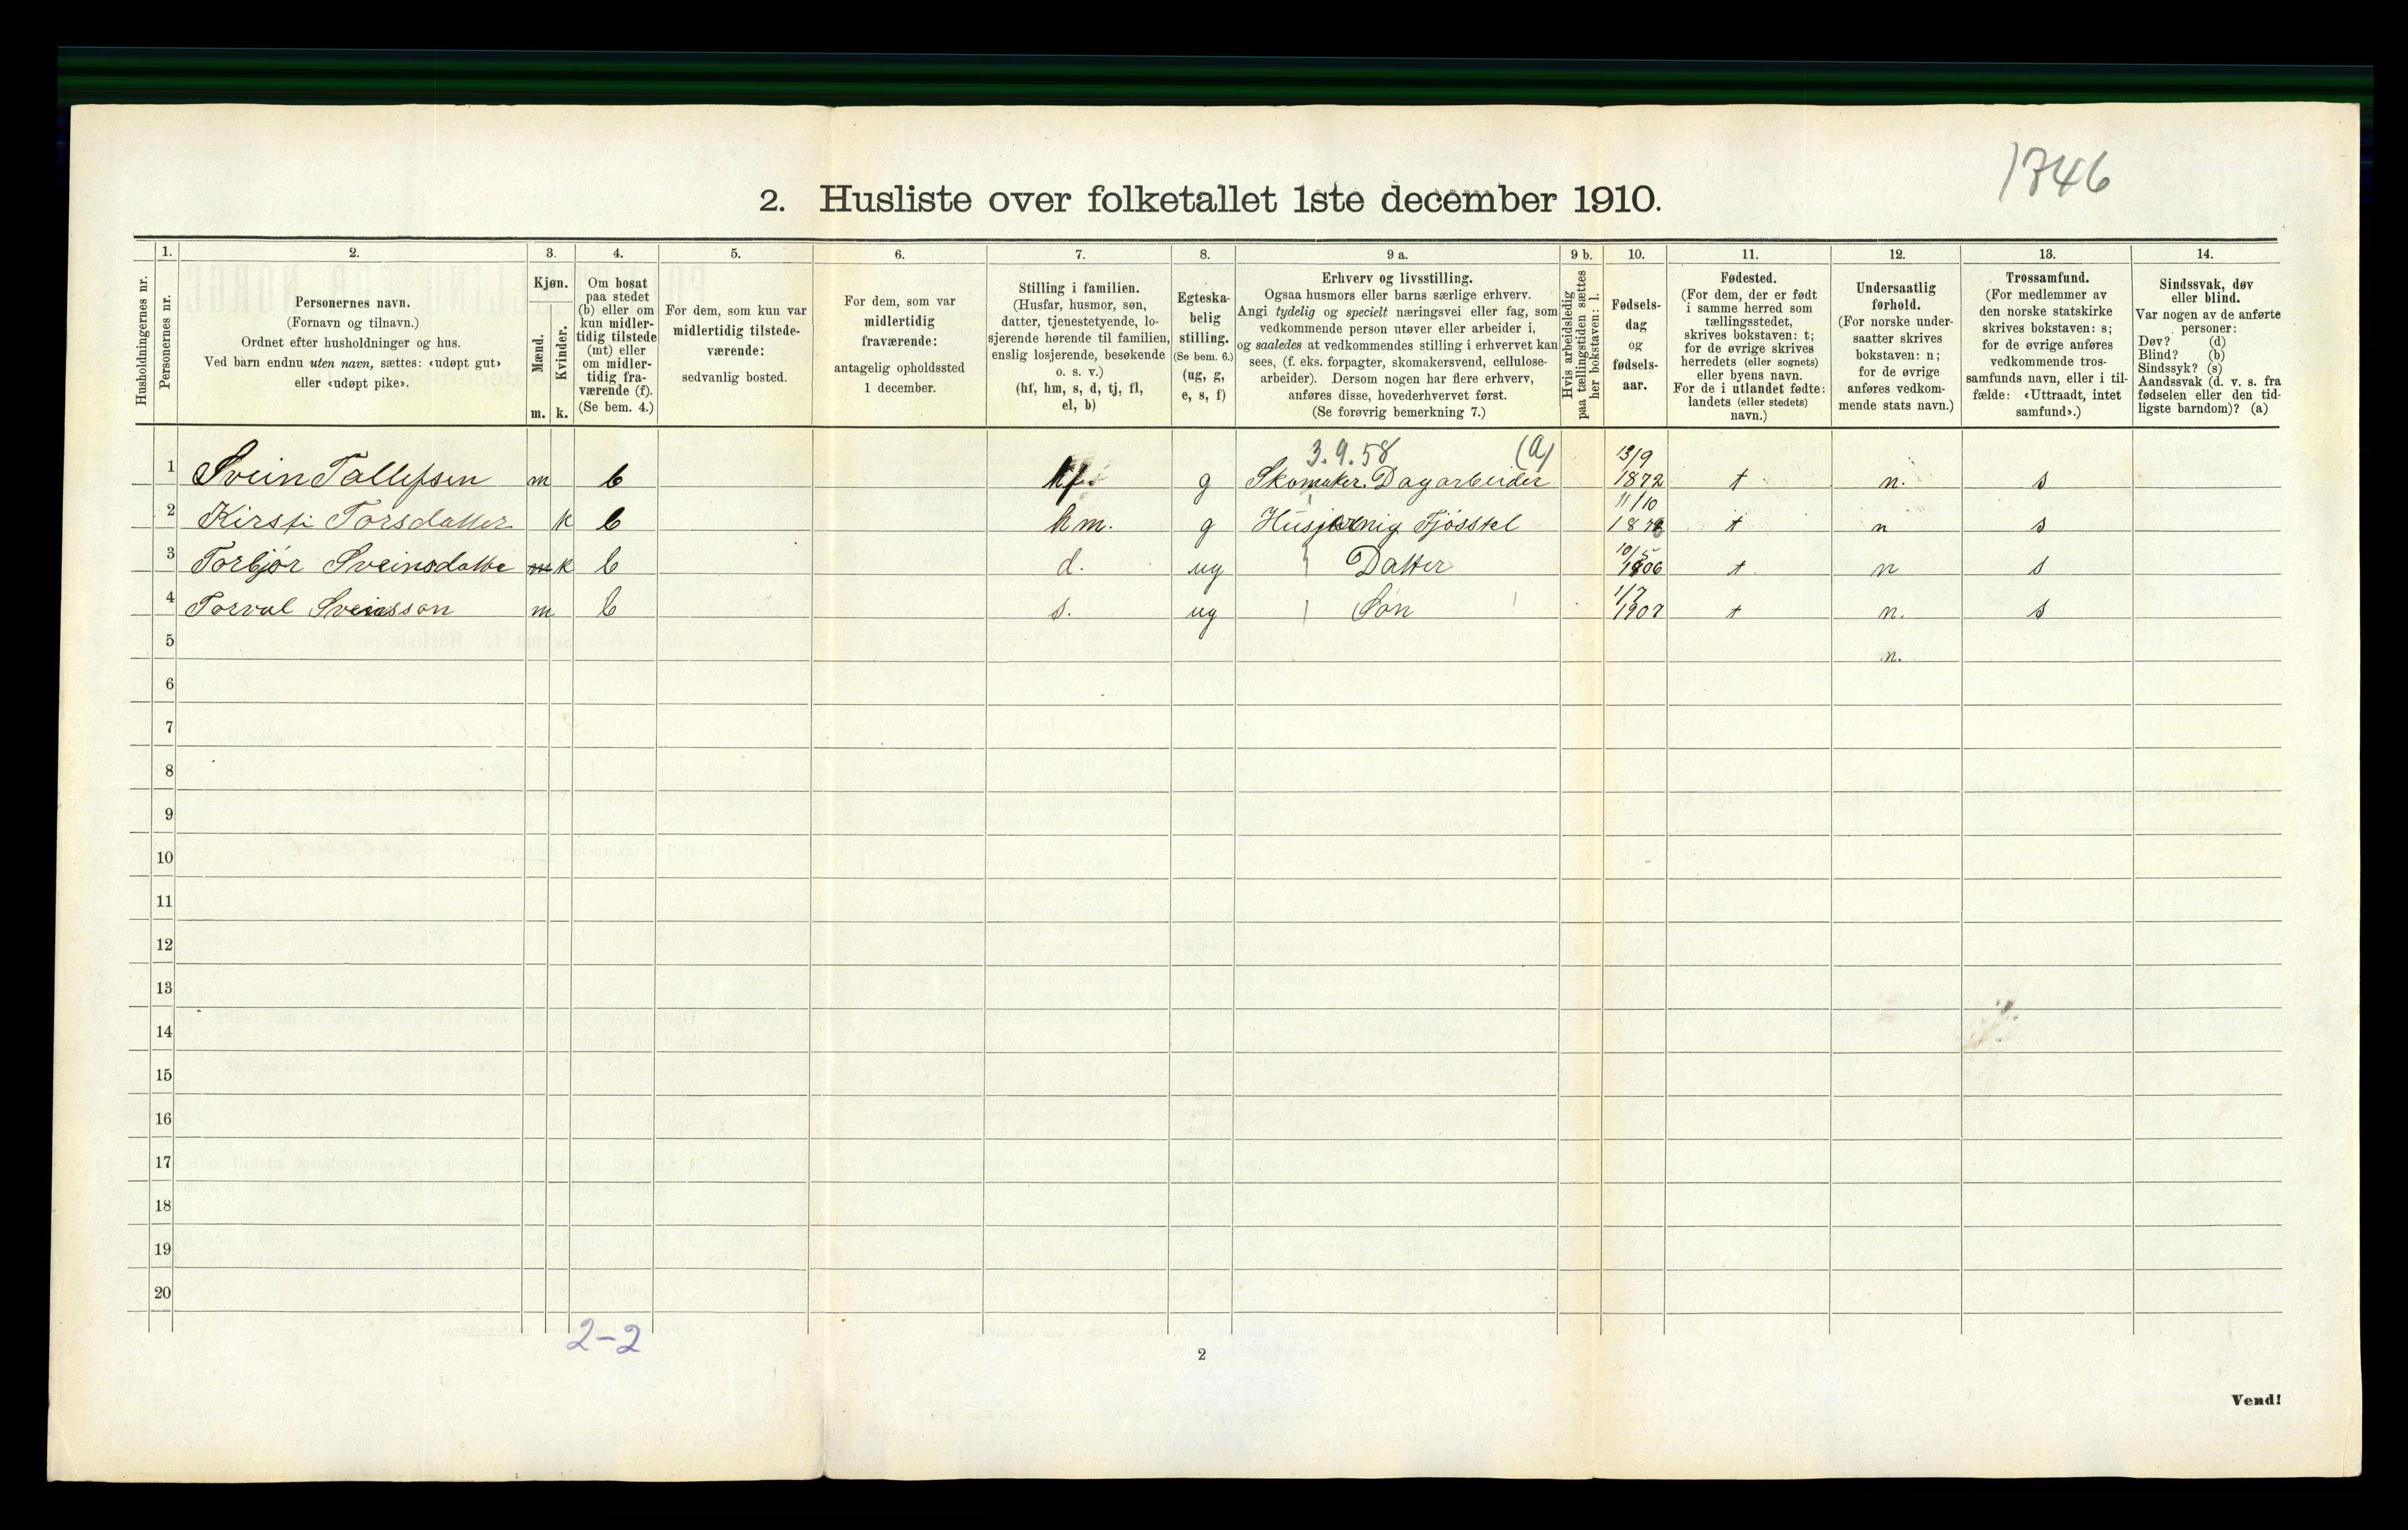 1746
2. Husliste over folketallet 1ste december 1910.
Husholdningernes nr.
1. Personernes nr.
2.
Personernes navn.
(Fornavn og tilnavn.)
Ordnet efter husholdninger og hus.
Ved barn endnu uten navn, sættes: «udøpt gut»
eller «udøpt pike».
3.
Kjøn.
Mænd. m.
Kvinder. k.
4.
Om bosat
paa stedet
(b) eller om
kun midler-
tidig tilstede
(mt) eller
om midler-
tidig fra-
værende (f).
(Se bem. 4.)
5.
For dem, som kun var
midlertidig tilstede-
værende:
sedvanlig bosted.
6.
For dem, som var
midlertidig
fraværende:
antagelig opholdssted
1 december.
7.
Stilling i familien.
(Husfar, husmor, søn,
datter, tjenestetyende, lo-
sjerende hørende til familien,
enslig losjerende, besøkende
o. s. v.)
(hf, hm, s, d, tj, fl,
el, b)
8.
Egteska-
belig
stilling.
(Se bem. 6.)
(ug, g,
e, s, f)
9 a.
Erhverv og livsstilling.
Ogsaa husmors eller barns særlige erhverv.
Angi tydelig og specielt næringsvei eller fag, som
vedkommende person utøver eller arbeider i,
og saaledes at vedkommendes stilling i erhvervet kan
sees, (f. eks. forpagter, skomakersvend, cellulose-
arbeider). Dersom nogen har flere erhverv,
anføres disse, hovederhvervet først.
(Se forøvrig bemerkning 7.)
9 b.
Hvis arbeidsledig
paa tællingstiden sættes
her bokstaven: l.
10.
Fødsels-
dag
og
fødsels-
aar.
11.
Fødested.
(For dem, der er født
i samme herred som
tællingsstedet,
skrives bokstaven: t;
for de øvrige skrives
herredets (eller sognets)
eller byens navn.
For de i utlandet fødte:
landets (eller stedets)
navn.)
12.
Undersaatlig
forhold.
(For norske under-
saatter skrives
bokstaven: n;
for de øvrige
anføres vedkom-
mende stats navn.)
13.
Trossamfund.
(For medlemmer av
den norske statskirke
skrives bokstaven: s;
for de øvrige anføres
vedkommende tros-
samfunds navn, eller i til-
fælde: «Uttraadt, intet
samfund».)
14.
Sindssvak, døv
eller blind.
Var nogen av de anførte
personer:
Døv? (d)
Blind? (b)
Sindssyk? (s)
Aandssvak (d. v. s. fra
fødselen eller den tid-
ligste barndom)? (a)
3.9.58 (a) 13/9
1 Svein Tallefsen m b hf. g Skomaker. Dagarbeider 1872 t n. s
11/10
2 Kirsti Torsdatter k b hm. g Husgjernig Fjösstel t n s
10/5
3 Torbjör Sveinsdatte m k b d. ug Datter 1906 t n s
1/7
4 Torval Sveinsson m b s. ug Sön 1907 t n. s
5 n.
6
7
8
9
10
11
12
13
14
15
16
17
18
19
20
2-2
2
Vend!